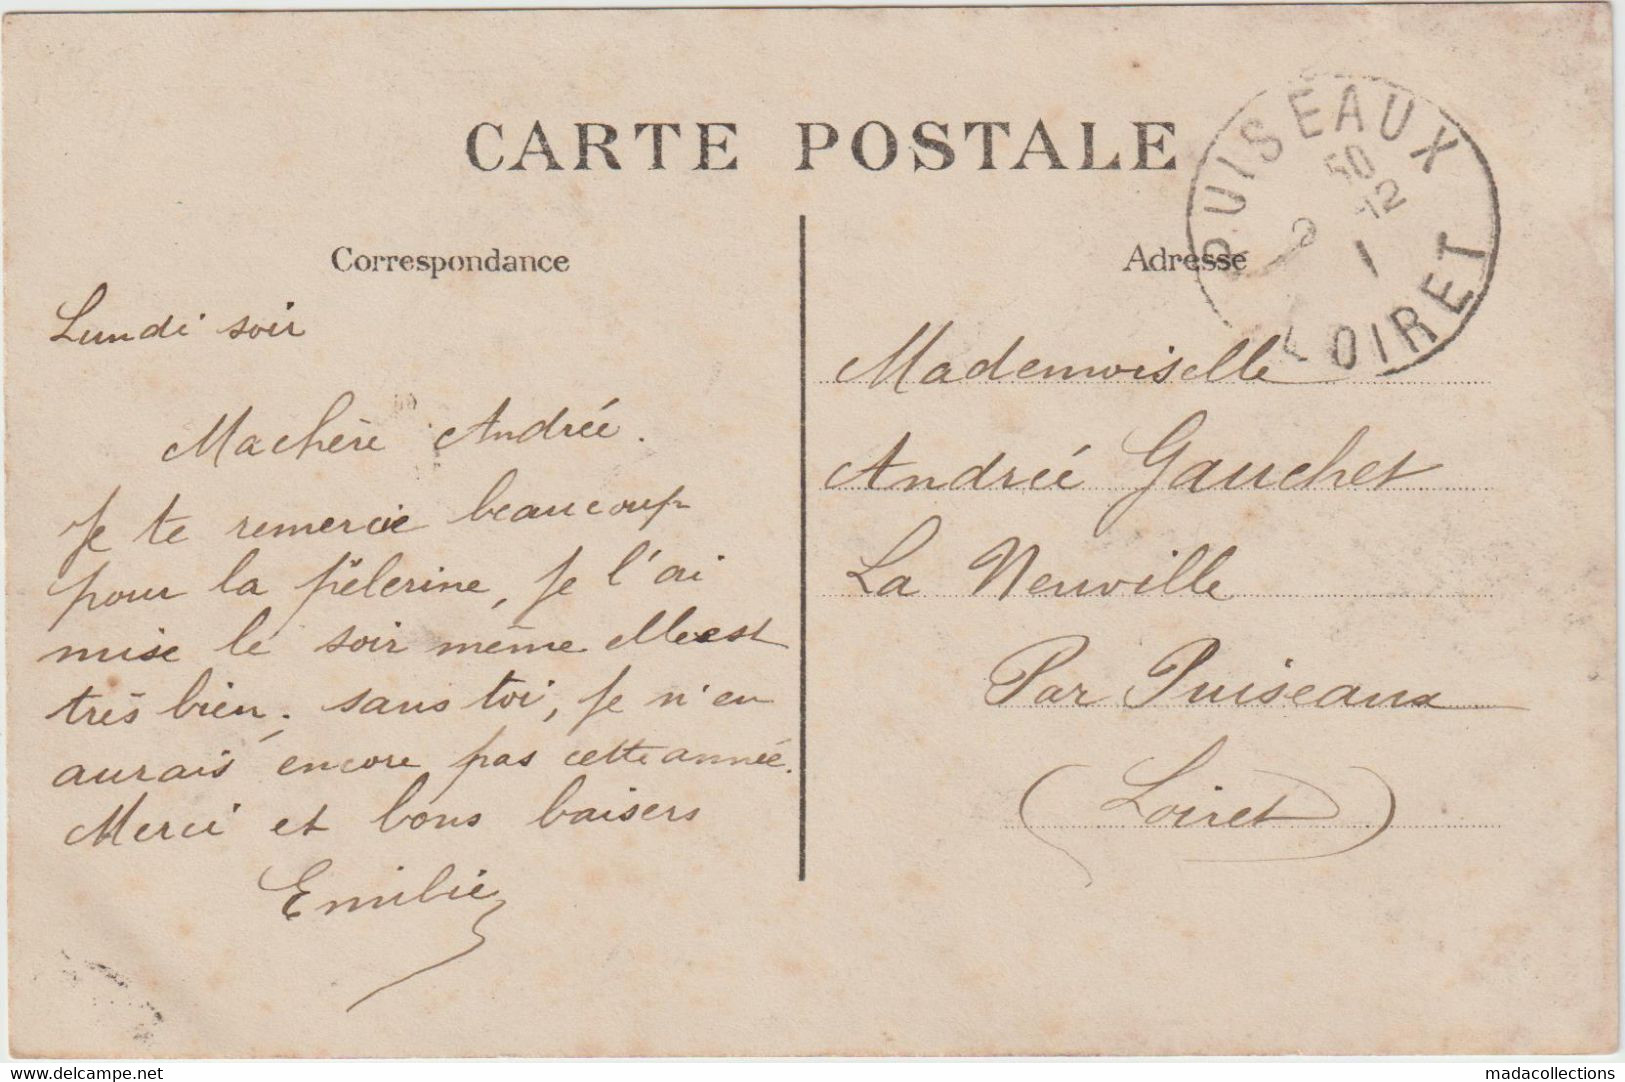 CARTE POSTALE
Correspondance
Lundi soir
Machère Andrée.
Je te remercie beaucoup
pour la pélerine, je l'ai
mise le soir même elle est
très bien. sans toi, je n'en
aurais encore pas cette année.
Merci et bons baisers
Emilie
Adresse
Mademoiselle
Andrée Gauchet
La Neuville
Par Puiseaux
(Loiret)
PUISEAUX
LOIRET
www.delcampe.net
madacollections